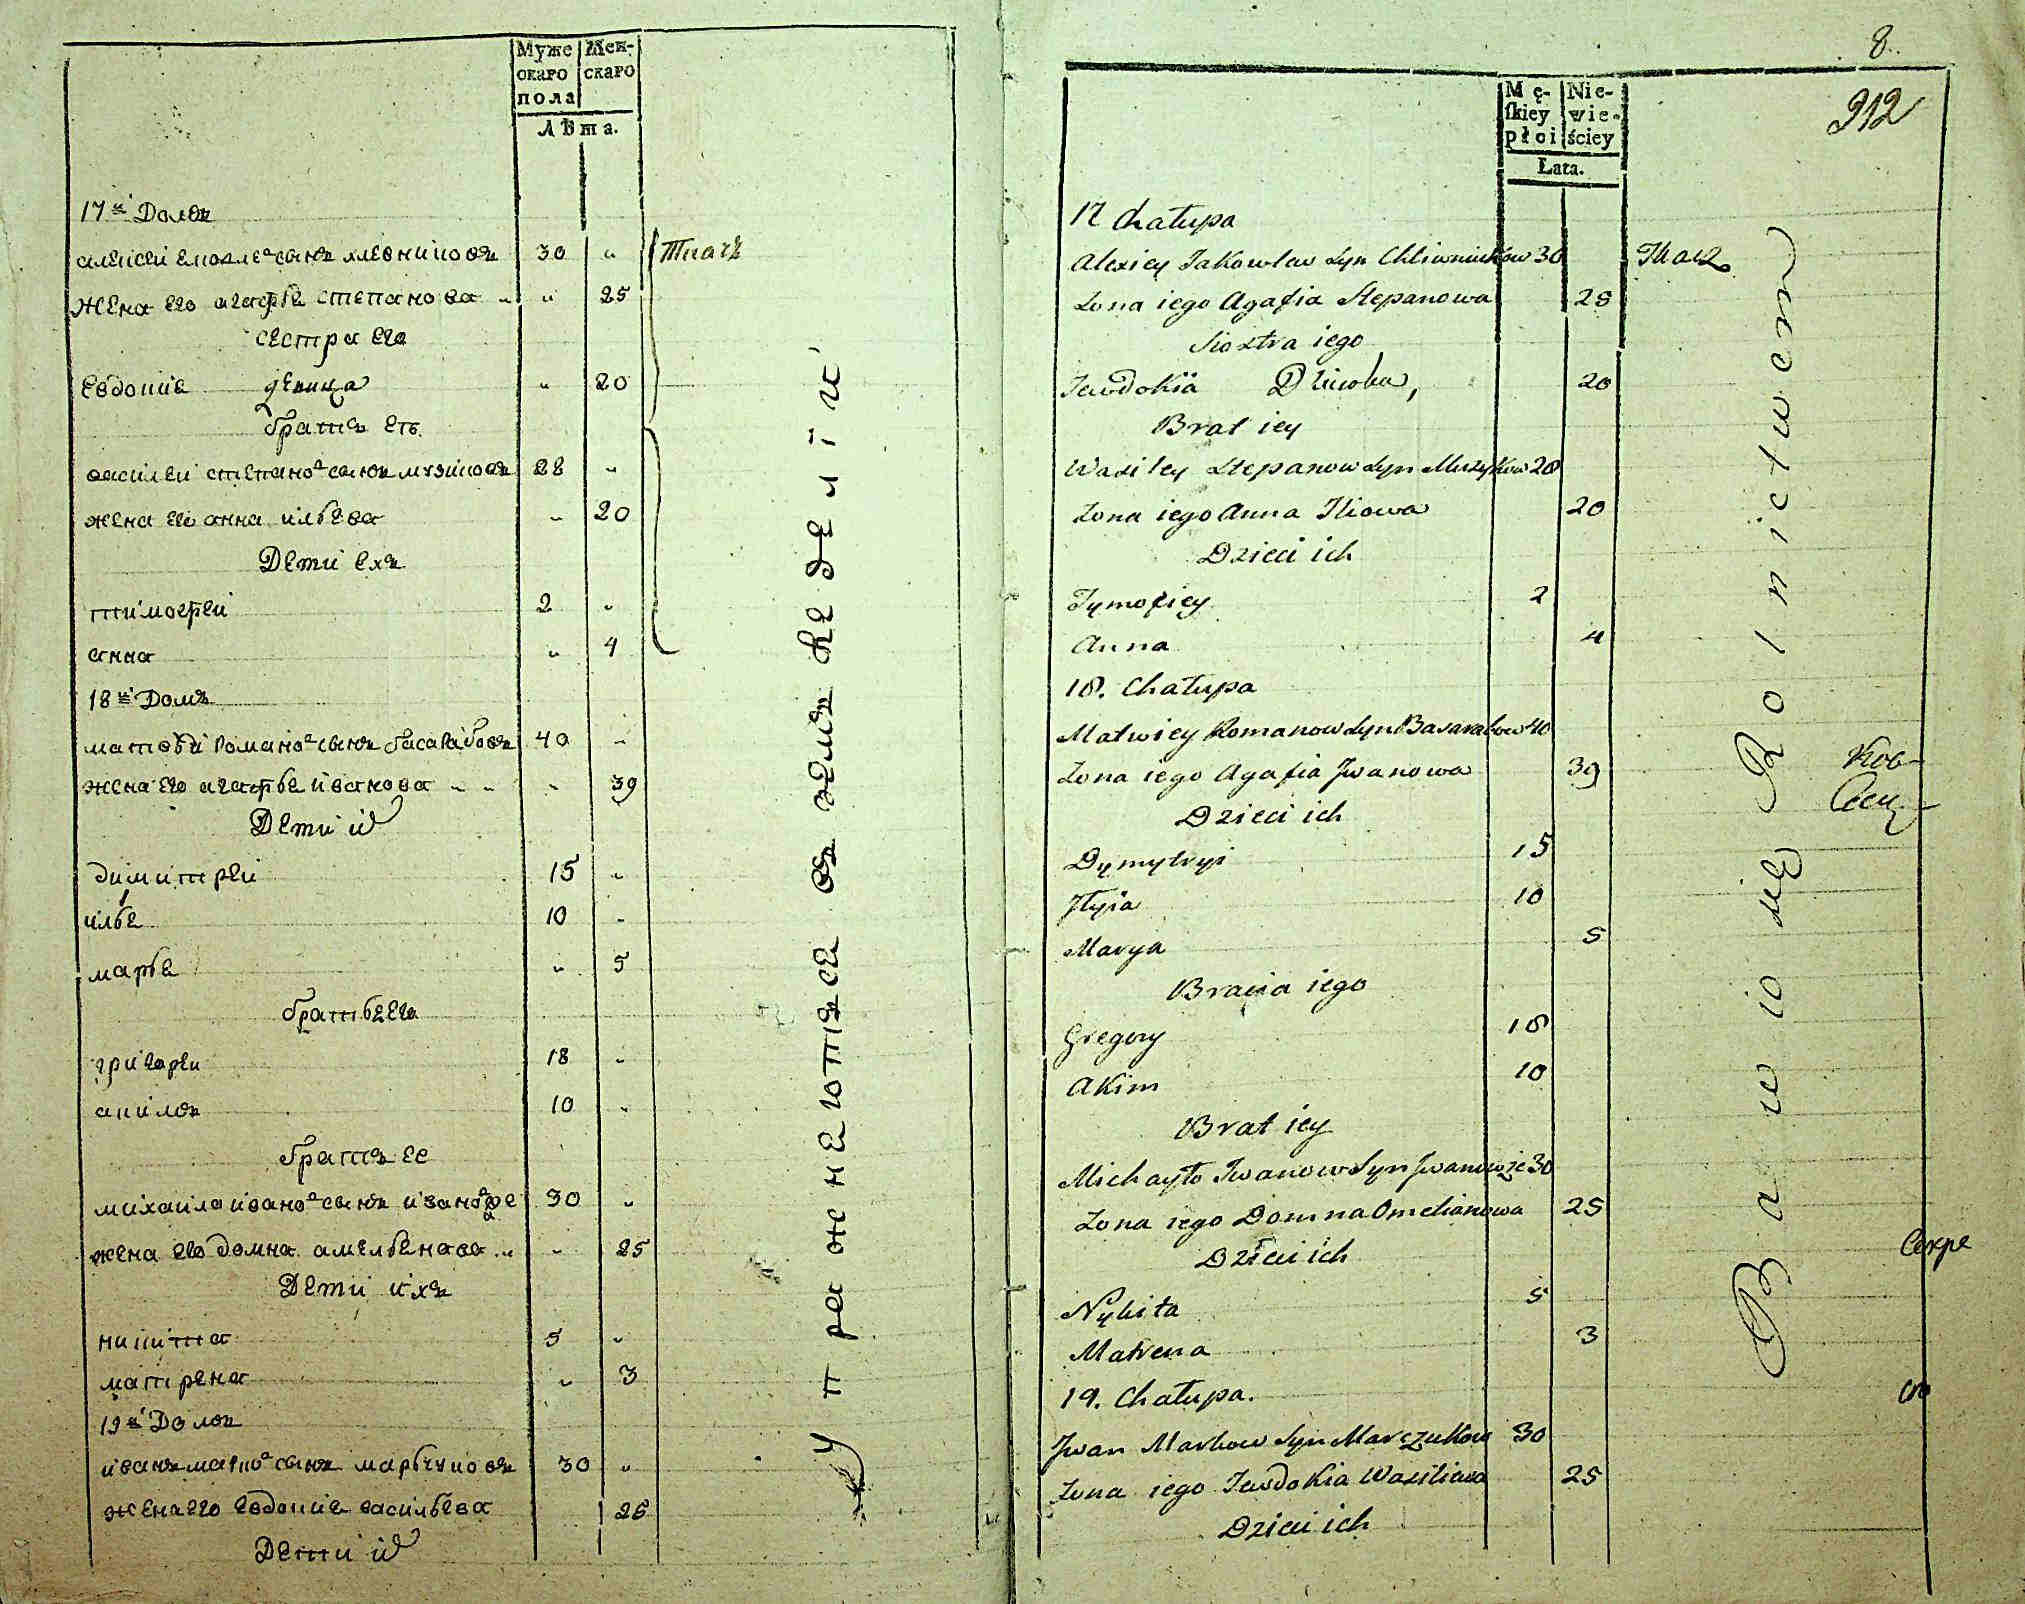 Муже
скаго
пола
Жен-
скаго
Лѣта.
17й Домъ
алексеи ековле сынъ хлевниковъ 30 "
Ткачъ
жена его агафье степанова " 25
сестра его
евдокие девица " 20
братъ еѣ
василеи степано сынъ музиковъ 28 "
жена его анна ильева " 20
Дети ехъ
тимофеи 2 "
анна " 4
18й Домъ
матвеи романо сынъ басарабовъ 40 "
жена его агафье иванова " 39
Дети их
димитреи 15 "
илье 10 "
марье " 5
братье его
григореи 18 "
акимъ 10 "
братъ ее
михаила ивано сынъ 30 "
жена его домна амельенова " 25
Дети ихъ
никита 5 "
матрена " 3
19й Домъ
иванъ марко сынъ марчуковъ 30 "
жена его евдокие васильева 25
Дети их
упражнеютъсе въ земле
8.
912
Mę-
ſkiey
płci
Nie-
wie-
ściey
Łata.
17 Chałupa
Alexiey Jakowlew Syn Chliwniuków 30
Tkacz
Żona iego Agafia Stepanowa 25
Siostra iego
Jewdokia Dziewka, 20
Brat iey
Wasiley Stepanow Syn Muzyków 28
Żona iego Anna Iliowa 20
Dzieci ich
Tymofiey 2
Anna 4
18. Chałupa
Matwiey Romanow Syn Basarabow 40
Żona iego Agafia Jwanowa 39
Dzieci ich
Dymytryi 15
Jlyia 10
Marya 5
Bracia iego
Gregory 18
Akim 10
Brat iey
Michayło Iwanow Syn 30
Żona iego Domna Omelianowa 25
Dzieci ich
Nykita 5
Matrena 3
19. Chałupa.
Jwan Markow Syn Marczukow 30
Żona iego Jewdokia Wasiliewa 25
Dzieci ich
Bawio się Rolnictwem